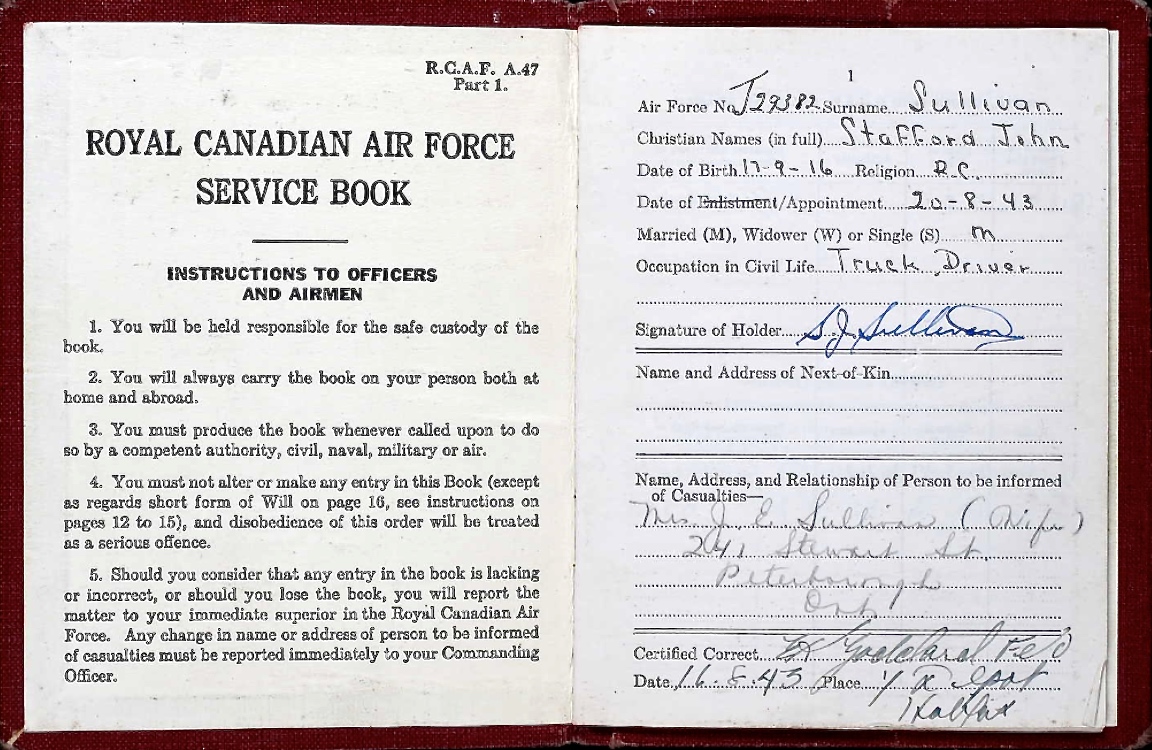 R.C.A.F. A.47
Part 1.
ROYAL CANADIAN AIR FORCE
SERVICE BOOK
INSTRUCTIONS TO OFFICERS
AND AIRMEN
1. You will be held responsible for the safe custody of the
book.
2. You will always carry the book on your person both at
home and abroad.
3. You must produce the book whenever called upon to do
so by a competent authority, civil, naval, military or air.
4. You must not alter or make any entry in this Book (except
as regards short form of Will on page 16, see instructions on
pages 12 to 15), and disobedience of this order will be treated
as a serious offence.
5. Should you consider that any entry in the book is lacking
or incorrect, or should you lose the book, you will report the
matter to your immediate superior in the Royal Canadian Air
Force. Any change in name or address of person to be informed
of casualties must be reported immediately to your Commanding
Officer.
1
Air Force No. J29382 Surname Sullivan
Christian Names (in full) Stafford John
Date of Birth 17-9-16 Religion R.C.
Date of Enlistment/Appointment 20-8-43
Married (M), Widower (W) or Single (S) M
Occupation in Civil Life Truck Driver
Signature of Holder S.J. Sullivan
Name and Address of Next-of-Kin
Name, Address, and Relationship of Person to be informed
of Casualties—
Mrs J. E. Sullivan (Wife)
241 Stewart St.
Peterborough
Ont
Certified Correct Goddard F/O
Date 16.8.43 Place "Y" Depot
Halifax